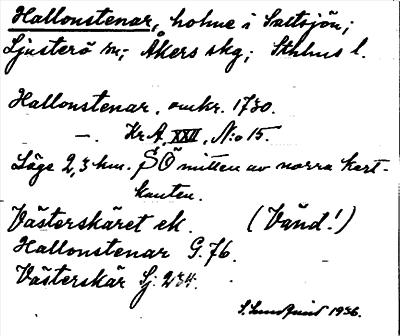 Hallonstenar, holme i Saltsjön;
Ljusterö sn; Åkers skg; Sthlms l.
Hallonstenar, omkr. 1730.
—. Kr.A, XXII, N:o 15.
Läge 2,3 km. SÖ mitten av norra kart-
kanten.
Västerskäret ek. (Vänd!)
Hallonstenar G. 76.
Västerskär Sj. 234.
S. 1936.